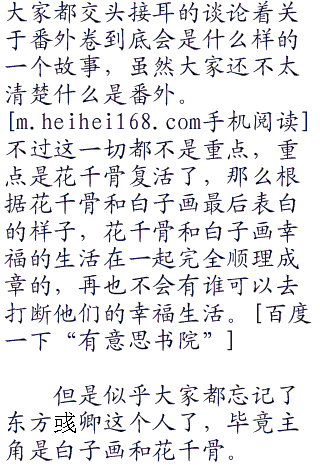 大家都交头接耳的谈论着关
于番外卷到底会是什么样的
一个故事，虽然大家还不太
清楚什么是番外。
[m.heihei168.com手机阅读]
不过这一切都不是重点，重
点是花千骨复活了，那么根
据花千骨和白子画最后表白
的样子，花千骨和白子画幸
福的生活在一起完全顺理成
章的，再也不会有谁可以去
打断他们的幸福生活。[百度
一下“有意思书院”]
但是似乎大家都忘记了
东方彧卿这个人了，毕竟主
角是白子画和花千骨。